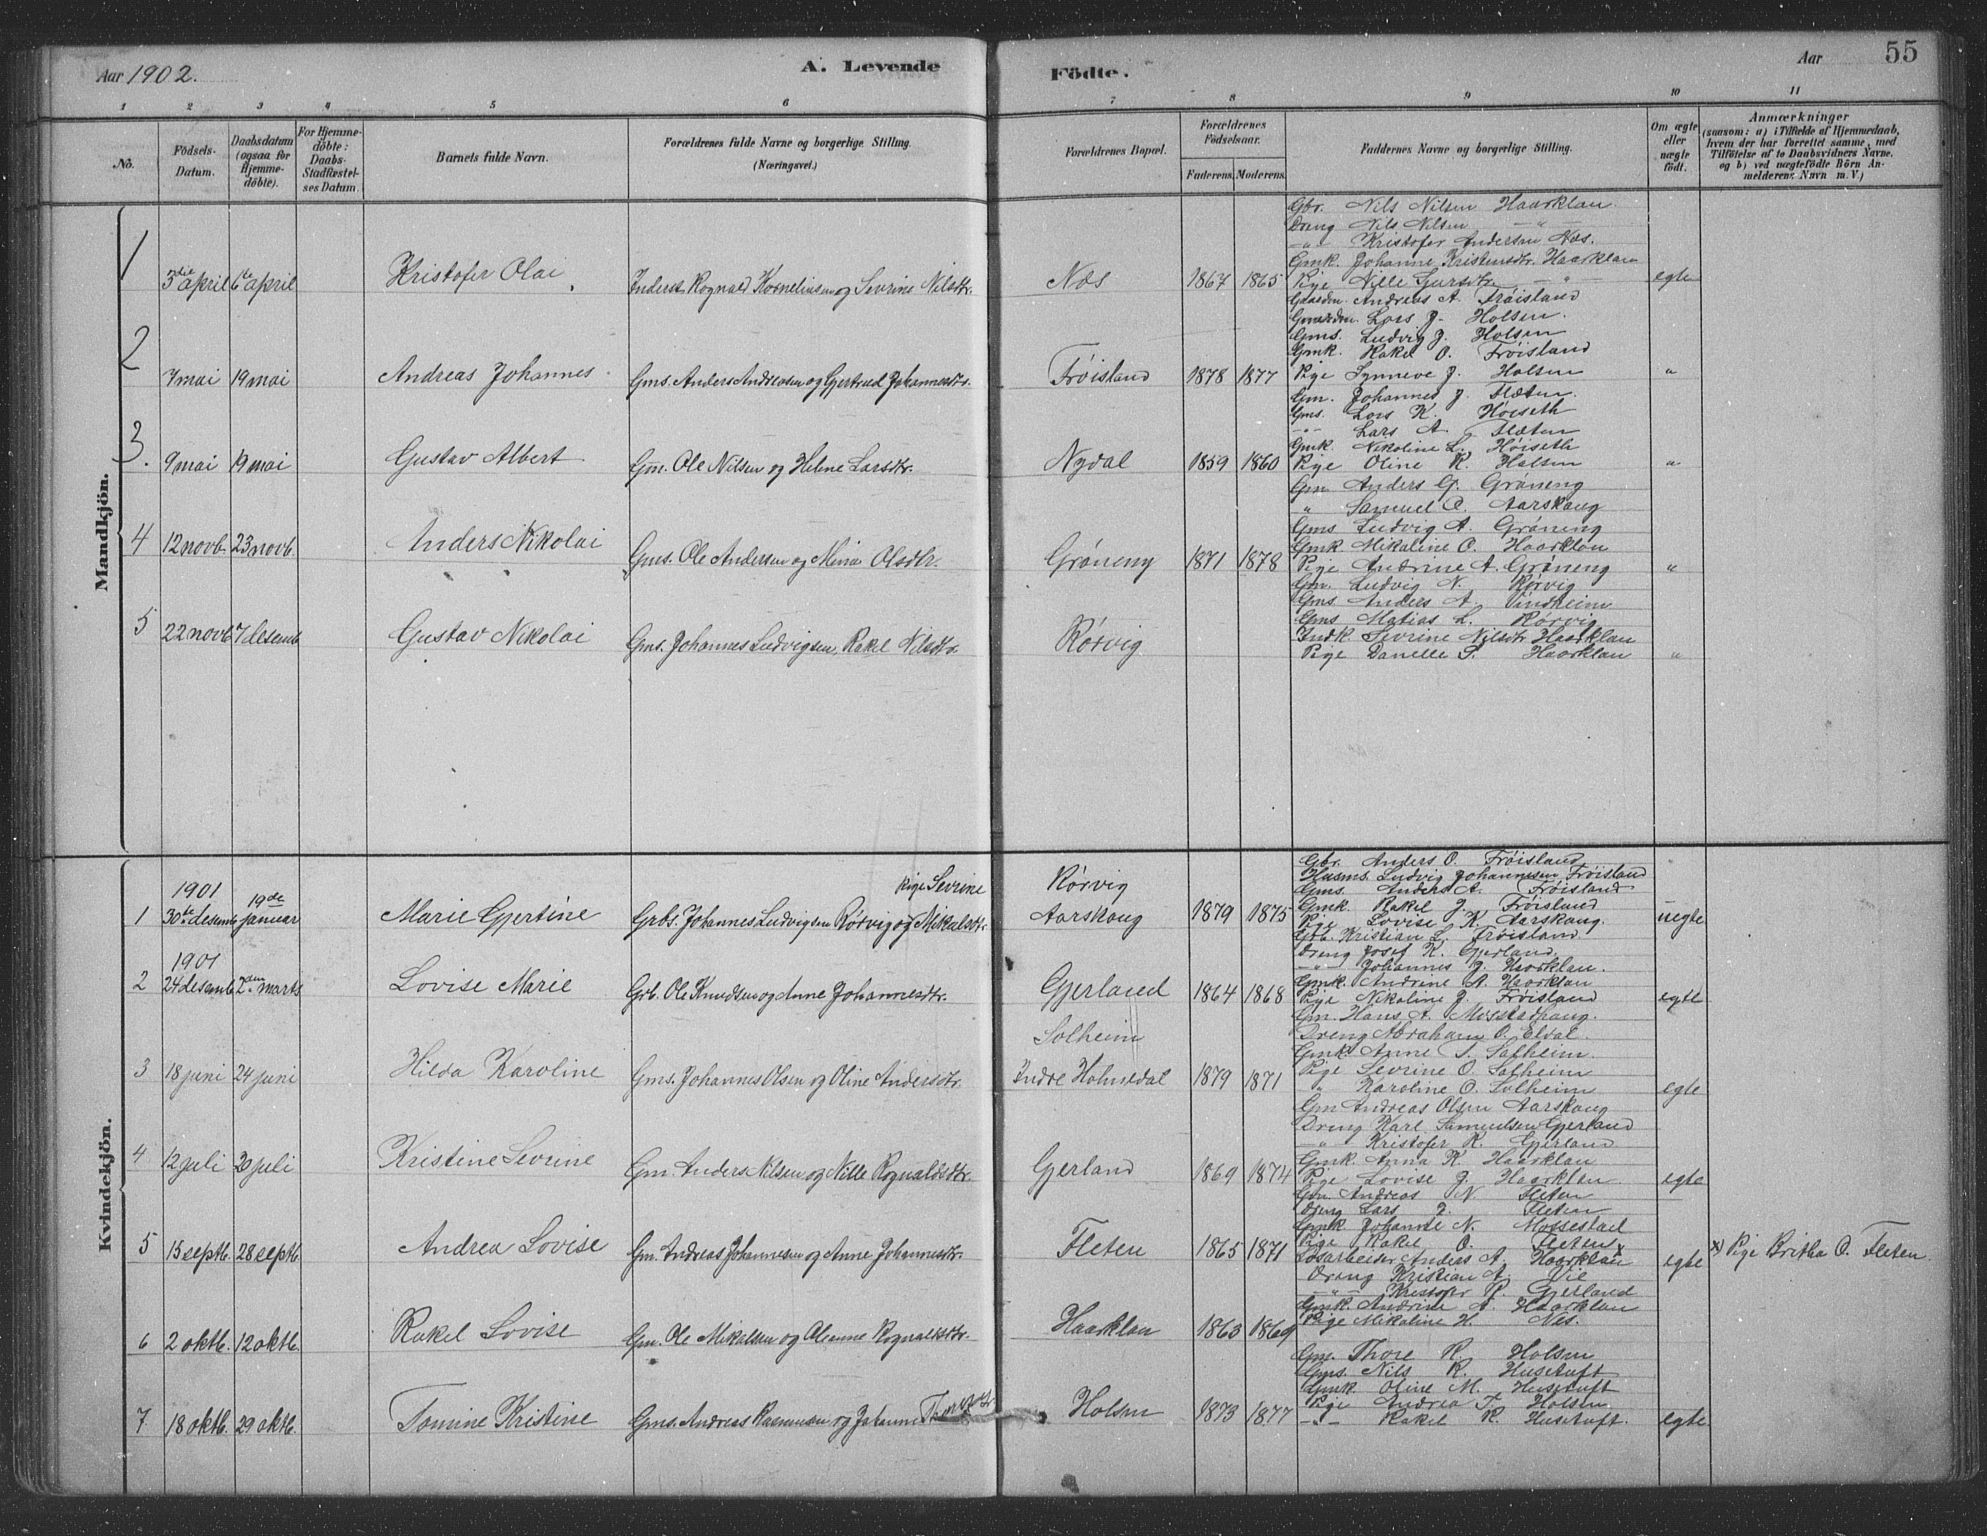 Aar 1902.
A. Levende Födte.
Aar 55
1 2 3 4 5 6 7 8 9 10 11
No.
Födsels-Datum.
Daabsdatum (ogsaa for Hjemme-döbte).
For Hjemme-döbte: Daabs-Stadfæstel-ses Datum.
Barnets fulde Navn.
Forældrenes fulde Navne og borgerlige Stilling. (Næringsvei.)
Forældrenes Bopæl.
Forældrenes Födselsaar.
Faderens. Moderens.
Faddernes Navne og borgerlige Stilling.
Om ægte eller uægte födt.
Anmærkninger (saasom: a) i Tilfælde af Hjemmedaab, hvem der har forrettet samme, med Tilföielse af to Daabsvidners Navne, og b) ved uægtefödte Börn Anmelderens Navn m. V.)
Mandkjön.
1 3die april 6te april Kristofer Olai Inderst Rognald Korneliusen og Sevrine Nilsdtr. Næs 1867 1865 egte
Gbr. Nils Nilsen Haarklau
Dreng Nils Nilsen -"-
-"- Kristofer Andersen Næs.
Gmk. Johanne Kristensdtr. Haarklau
Pige Nille Larsdtr. -"-
2 7 mai 19 mai Andreas Johannes Gms. Anders Andreasen og Gjertrud Johannesdtr. Frøisland 1878 1877 "
Andreas A. Frøisland
Lars J. Holsen.
Gms. Ludvig J. Holsen
Gmk. Rakel O. Frøisland
Pige Synneve J. Holsen
3. 9 mai 19 mai Gustav Albert Gm. Ole Nilsen og Helene Larsdtr. Nydal 1859 1860 "
Gm. Johannes J. Flæten
Gms. Lars K. Høiseth
-"- Lars A. Flæten
Gmk. Nikoline L. Høiseth
Pige Oline R. Holsen
4 12 novb. 23 novb. Anders Nikolai Gms. Ole Andersen og Mina Olsdtr. Grøneng 1871 1878 "
Gm. Anders G. Grøneng
" Samuel O. Aarskaug
Gms. Ludvig A. Grøneng
Gmk. Mikaline O. Haarklau
Pige Andrine A. Grøneng
5 22 novb. 7 desemb. Gustav Nikolai Gms. Johannes Ludvigsen, Rakel Nilsdtr. Rørvig "
Gm. Ludvig N. Rørvig
Gms. Anders A. Vindheim
Gms Matias L. Rørvig
Indk. Sevrine Nilsdtr Haarklau
Pige Danelle S. Haarklau
Kvindekjön.
1 1901 30te desemb. 19de januar Marie Gjertine Grbs. Johannes Ludvigsen Rørvig og Pige Sevrine Mikalsdtr. Rørvig Aarskaug 1879 1875 uegte
Gbr. Anders O. Frøisland
Husms. Ludvig Johannesen Frøisland
Gms. Anders A. Frøisland
Gmk. Rakel J. Frøisland
Pige Lovise K. Aarskaug.
2 1901 24 desemb. 2den marts Lovise Marie Grb. Ole Knudsen og Anne Johannesdtr. Gjerland 1864 1868 egte
Grb. Kristian L. Frøisland.
Dreng Josef K. Gjerland.
-"- Johannes J. Haarklau.
Gmk. Andrine A. Haarklau
Pige Nikoline J. Frøisland
3 18 juni 24 juni Hilda Karoline Gms. Johannes Olsen og Oline Andersdtr. Solheim Indre Holmedal 1879 1871 egte
Gm. Hans A. Mosstadhaug.
Dreng Abraham O. Eldal.
Gmk. Anne S. Solheim.
Pige Sevrine O. Solheim
" Karoline O. Solheim
4 12 juli 20 juli Kristine Sevrine Gm. Anders Nilsen og Nille Rognaldsdtr. Gjerland 1869 1874 egte
Gm Andreas Olsen Aarskaug
Dreng Karl Samuelsen Gjerland
-"- Kristofer R. Gjerland
Gmk. Anna K. Haarklau
Pige Lovise J. Haarklau
5 15 septb. 28 septb. Andrea Lovise Gm. Andreas Johannesen og Anne Johannesdtr. Fleten 1865 1871 egte x) Pige Britha O. Fleten.
Gbr. Andreas N. Fleten
Dreng Lars J. Fleten
Gmk Johanne N. Mossestad
Pige Rakel O. Fleten x
6 2 oktb. 12 oktb. Rakel Lovise Gm. Ole Mikalsen og Oleanne Rognaldsdtr. Haarklau 1863 1869
Losarbeider Anders A. Haarklau
Dreng Kristian A. Vie
-"- Kristofer R. Gjerland
Gmk. Andrine A. Haarklau
Pige Mikaline H. Nes.
7 18 oktb. 29 oktb. Tomine Kristine Gms. Andreas Rasmusen og Johanne Holsen 1873 1877 egte
Gm. Thore R. Holsen
Gms. Nils R. Husetuft
Gmk. Oline M. Husetuft
Pige Andrea T. Holsen
-"- Rakel R. Husetuft.